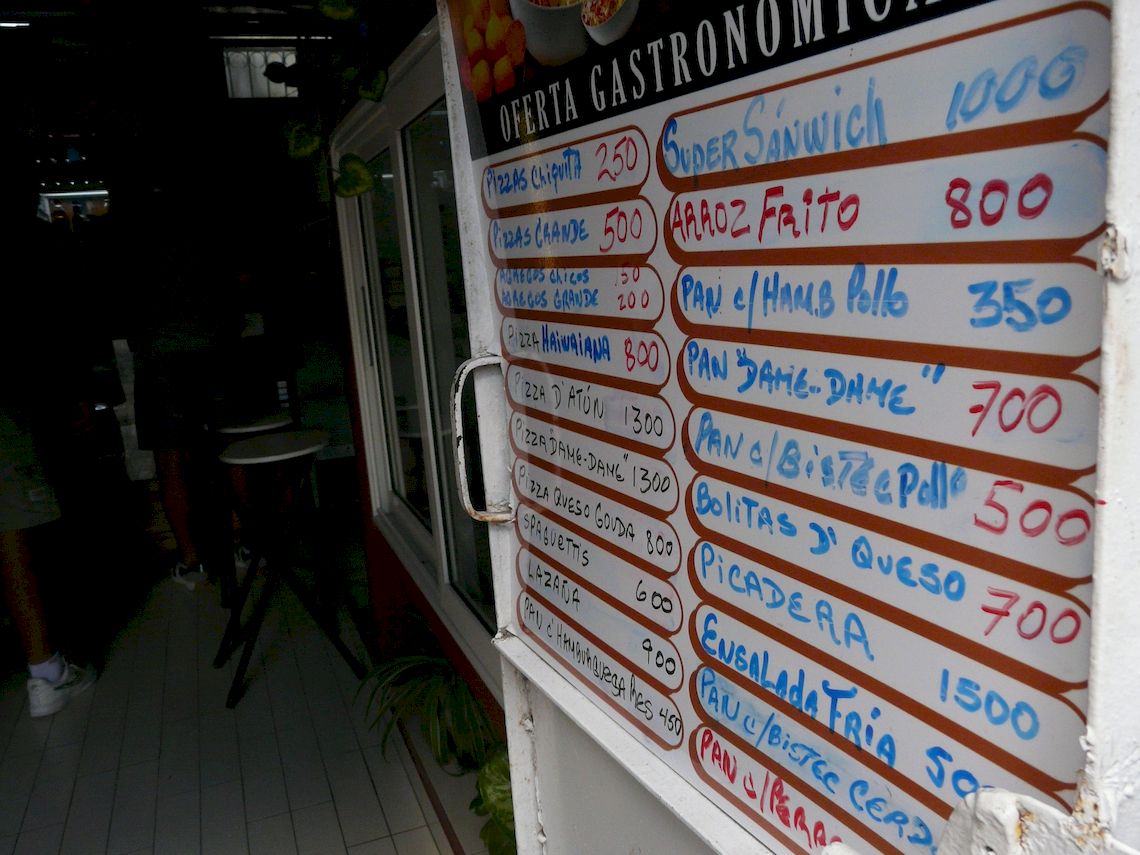 OFERTA GASTRONÓMICA
PIZZAS CHIQUITA 250
PIZZAS GRANDE 500
AGREGOS CHICOS 50
AGREGOS GRANDE 200
PIZZA HAIWAIANA 800
PIZZA D'ATÚN 1300
PIZZA "DAME-DAME" 1300
PIZZA QUESO GOUDA 800
SPAGUETTIS 600
LAZAÑA 900
PAN C/ HAMBURGUESA RES 450
SUPER SÁNWICH 1000
ARROZ FRITO 800
PAN C/ HAMB POLLO 350
PAN "DAME-DAME" 700
PAN C/ BISTEC POLLO 500
BOLITAS D' QUESO 700
PICADERA 1500
ENSALADA FRÍA
PAN C/ BISTEC CERD
PAN C/ PERR